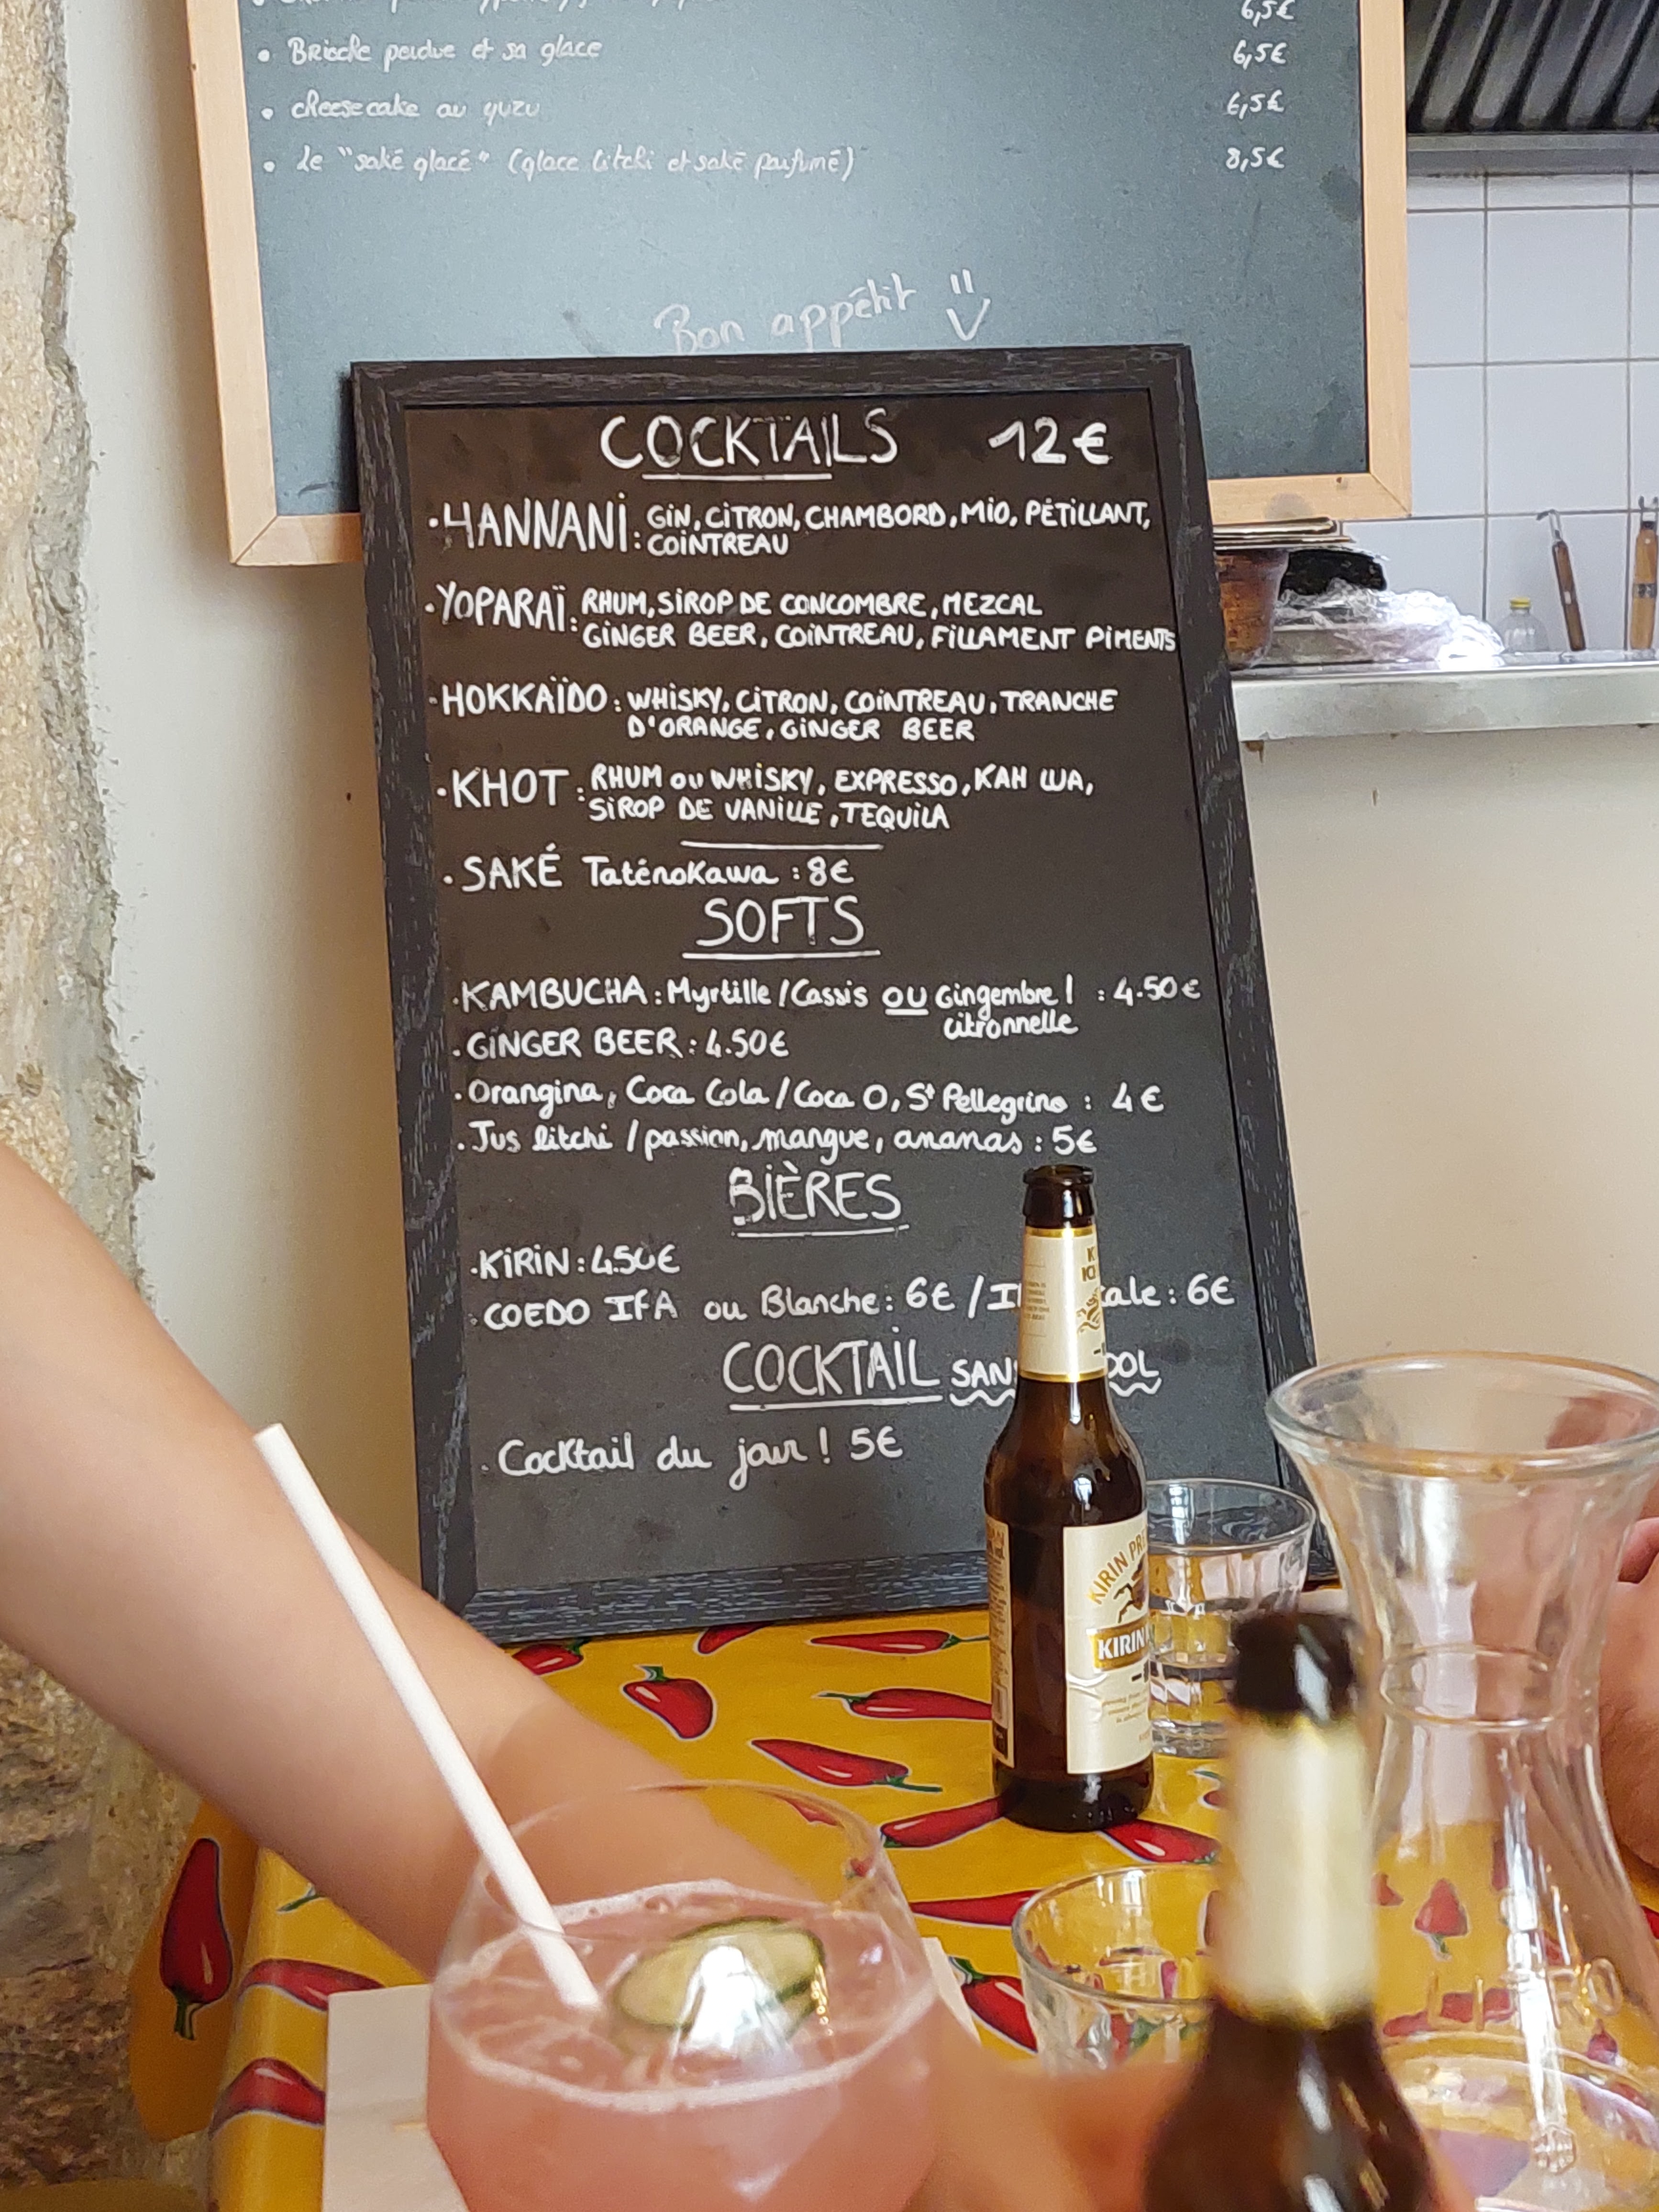 6,5€
• Brioche perdue et sa glace 6,5€
• cheesecake au yuzu 6,5€
• Le "saké glacé" (glace litchi et saké parfumé) 8,5€
Bon appétit
COCKTAILS 12€
· HANNANI : GIN, CITRON, CHAMBORD, MIO, PÉTILLANT,
COINTREAU
· YOPARAÏ : RHUM, SIROP DE CONCOMBRE, MEZCAL
GINGER BEER, COINTREAU, FILLAMENT PIMENTS
· HOKKAÏDO : WHISKY, CITRON, COINTREAU, TRANCHE
D'ORANGE, GINGER BEER
· KHOT : RHUM OU WHISKY, EXPRESSO, KAH LUA,
SIROP DE VANILLE, TEQUILA
· SAKÉ Taténokawa : 8€
SOFTS
· KAMBUCHA : Myrtille / Cassis OU Gingembre / : 4.50€
citronnelle
· GINGER BEER : 4.50€
· Orangina, Coca Cola / Coca O, St Pellegrino : 4€
· Jus litchi / passion, mangue, ananas : 5€
BIÈRES
· KIRIN : 4.50€
· COEDO IPA ou Blanche : 6€ / : 6€
COCKTAIL
· Cocktail du jour ! 5€
KIRIN
KIRIN